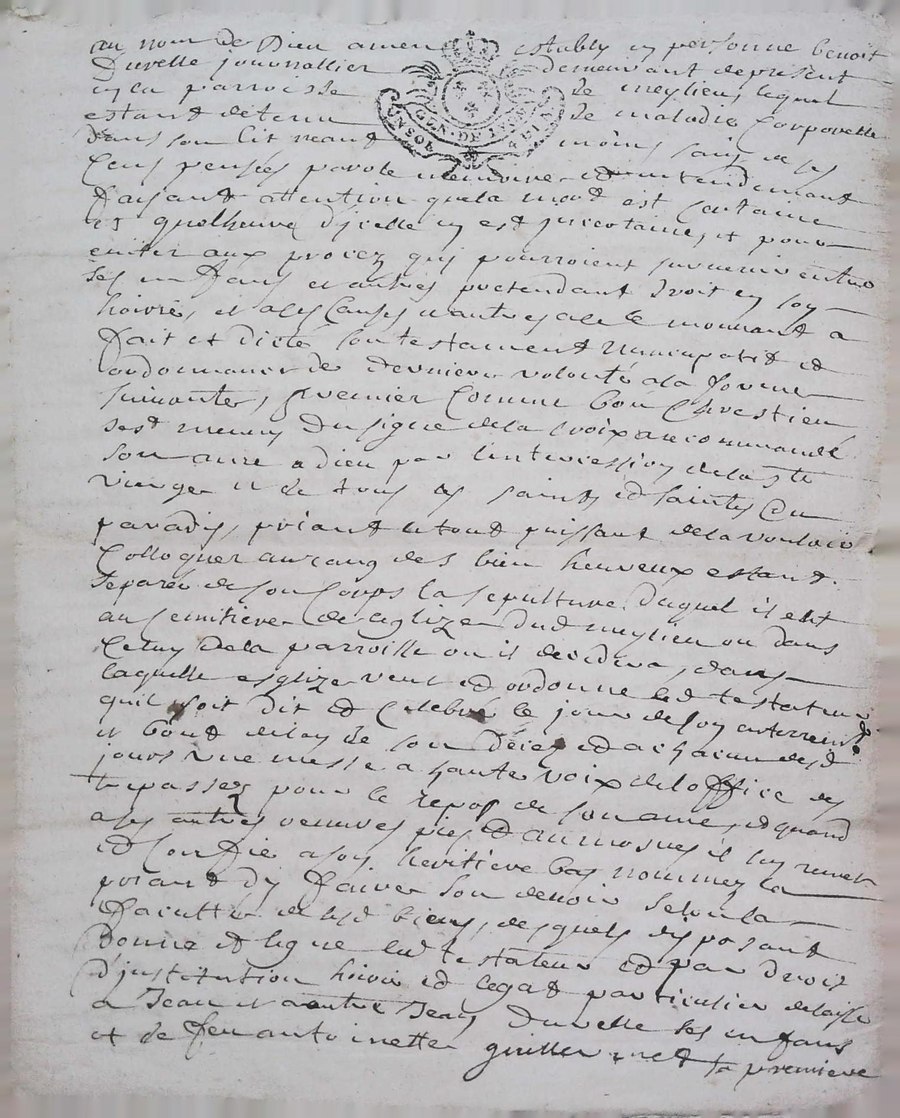 au nom de Dieu amen estably en personne benoit
Duvelle journallier demeurant depresent
en la parroisse de meylieu, lequel
estant detenu de maladie corporelle
dans son lit neant moins sain de ses
sens pensées parole memoire et entendement
faisant attention que la mort est certaine
et quelheure d'jcelle en est jncertaine, et pour
eviter aux procez quj pourroient survenir entre
ses enfans et autres pretendant droit en son
hoirie, et a les causes
fait et dicté son testament nuncupatif et
ordonnance de derniere volonté a la forme
suivante, premier comme bon Chrestien
sest muny du signe de la croix a recommandé
son ame a dieu par lintercession de la ste
vierge et de tous les saints et saintes du
paradis, priant le tout puissant de la vouloir
colloquer au rang des bien heureux estant
separée de son corps la sepulture duquel il est
au semitiere de leglize dud meylieu ou dans
celuy de la parroisse ou il decedera, dans
laquelle esglize veut et ordonne led testateur
quil soit dit et celebré le jour de son enterrement
et bout de lan de son décez et a chacun desd
jours une messe a haute voix de loffice des
trepassez pour le repos de son ame, et quand
a ses autres œuvres pies et aumosnes il sen remet
et confie a son heritiere bas nommez la
priant dy faire son devoir selon la
faculté de sesd biens, desquels disposant
donne et legue led testateur et par droit
d'jnstitution hoirie et legat particulier delaisse
a Jean et autre Jean Duvelle ses enfans
et de feu antoinette la premiere